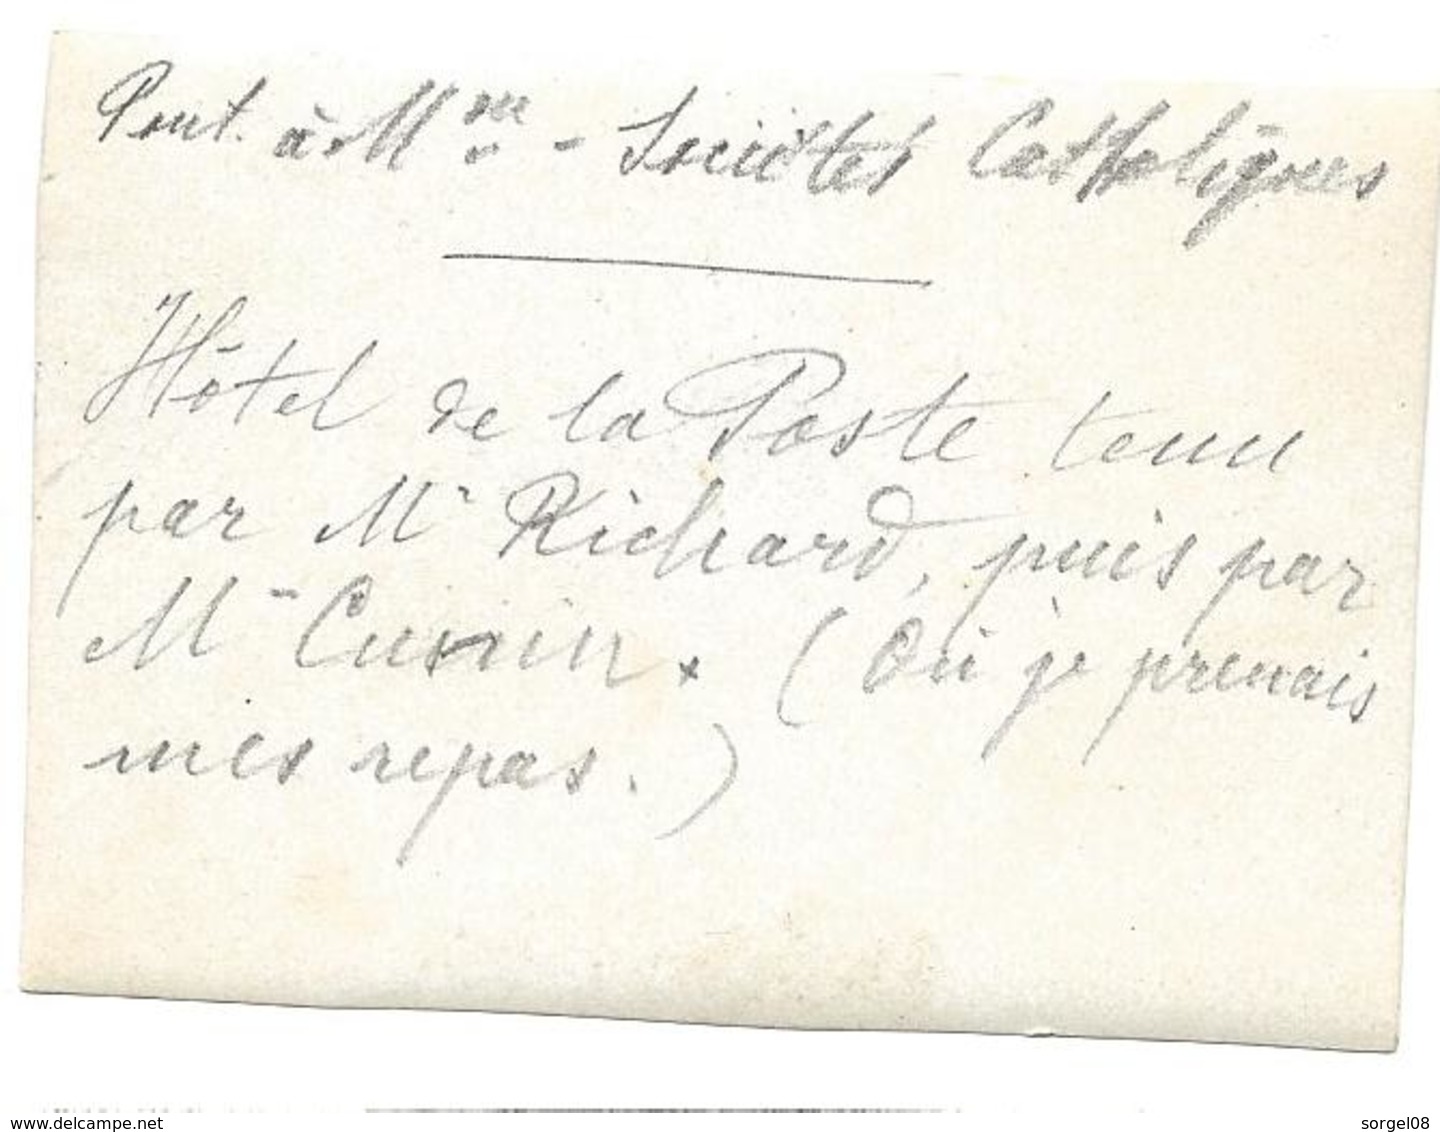 Pont à M^on - Sociétés Catholiques
Hôtel de la Poste tenu
par Mr Richard, puis par
Mr Cunin. (Où je prenais
mes repas.)
www.delcampe.net
sorgel08